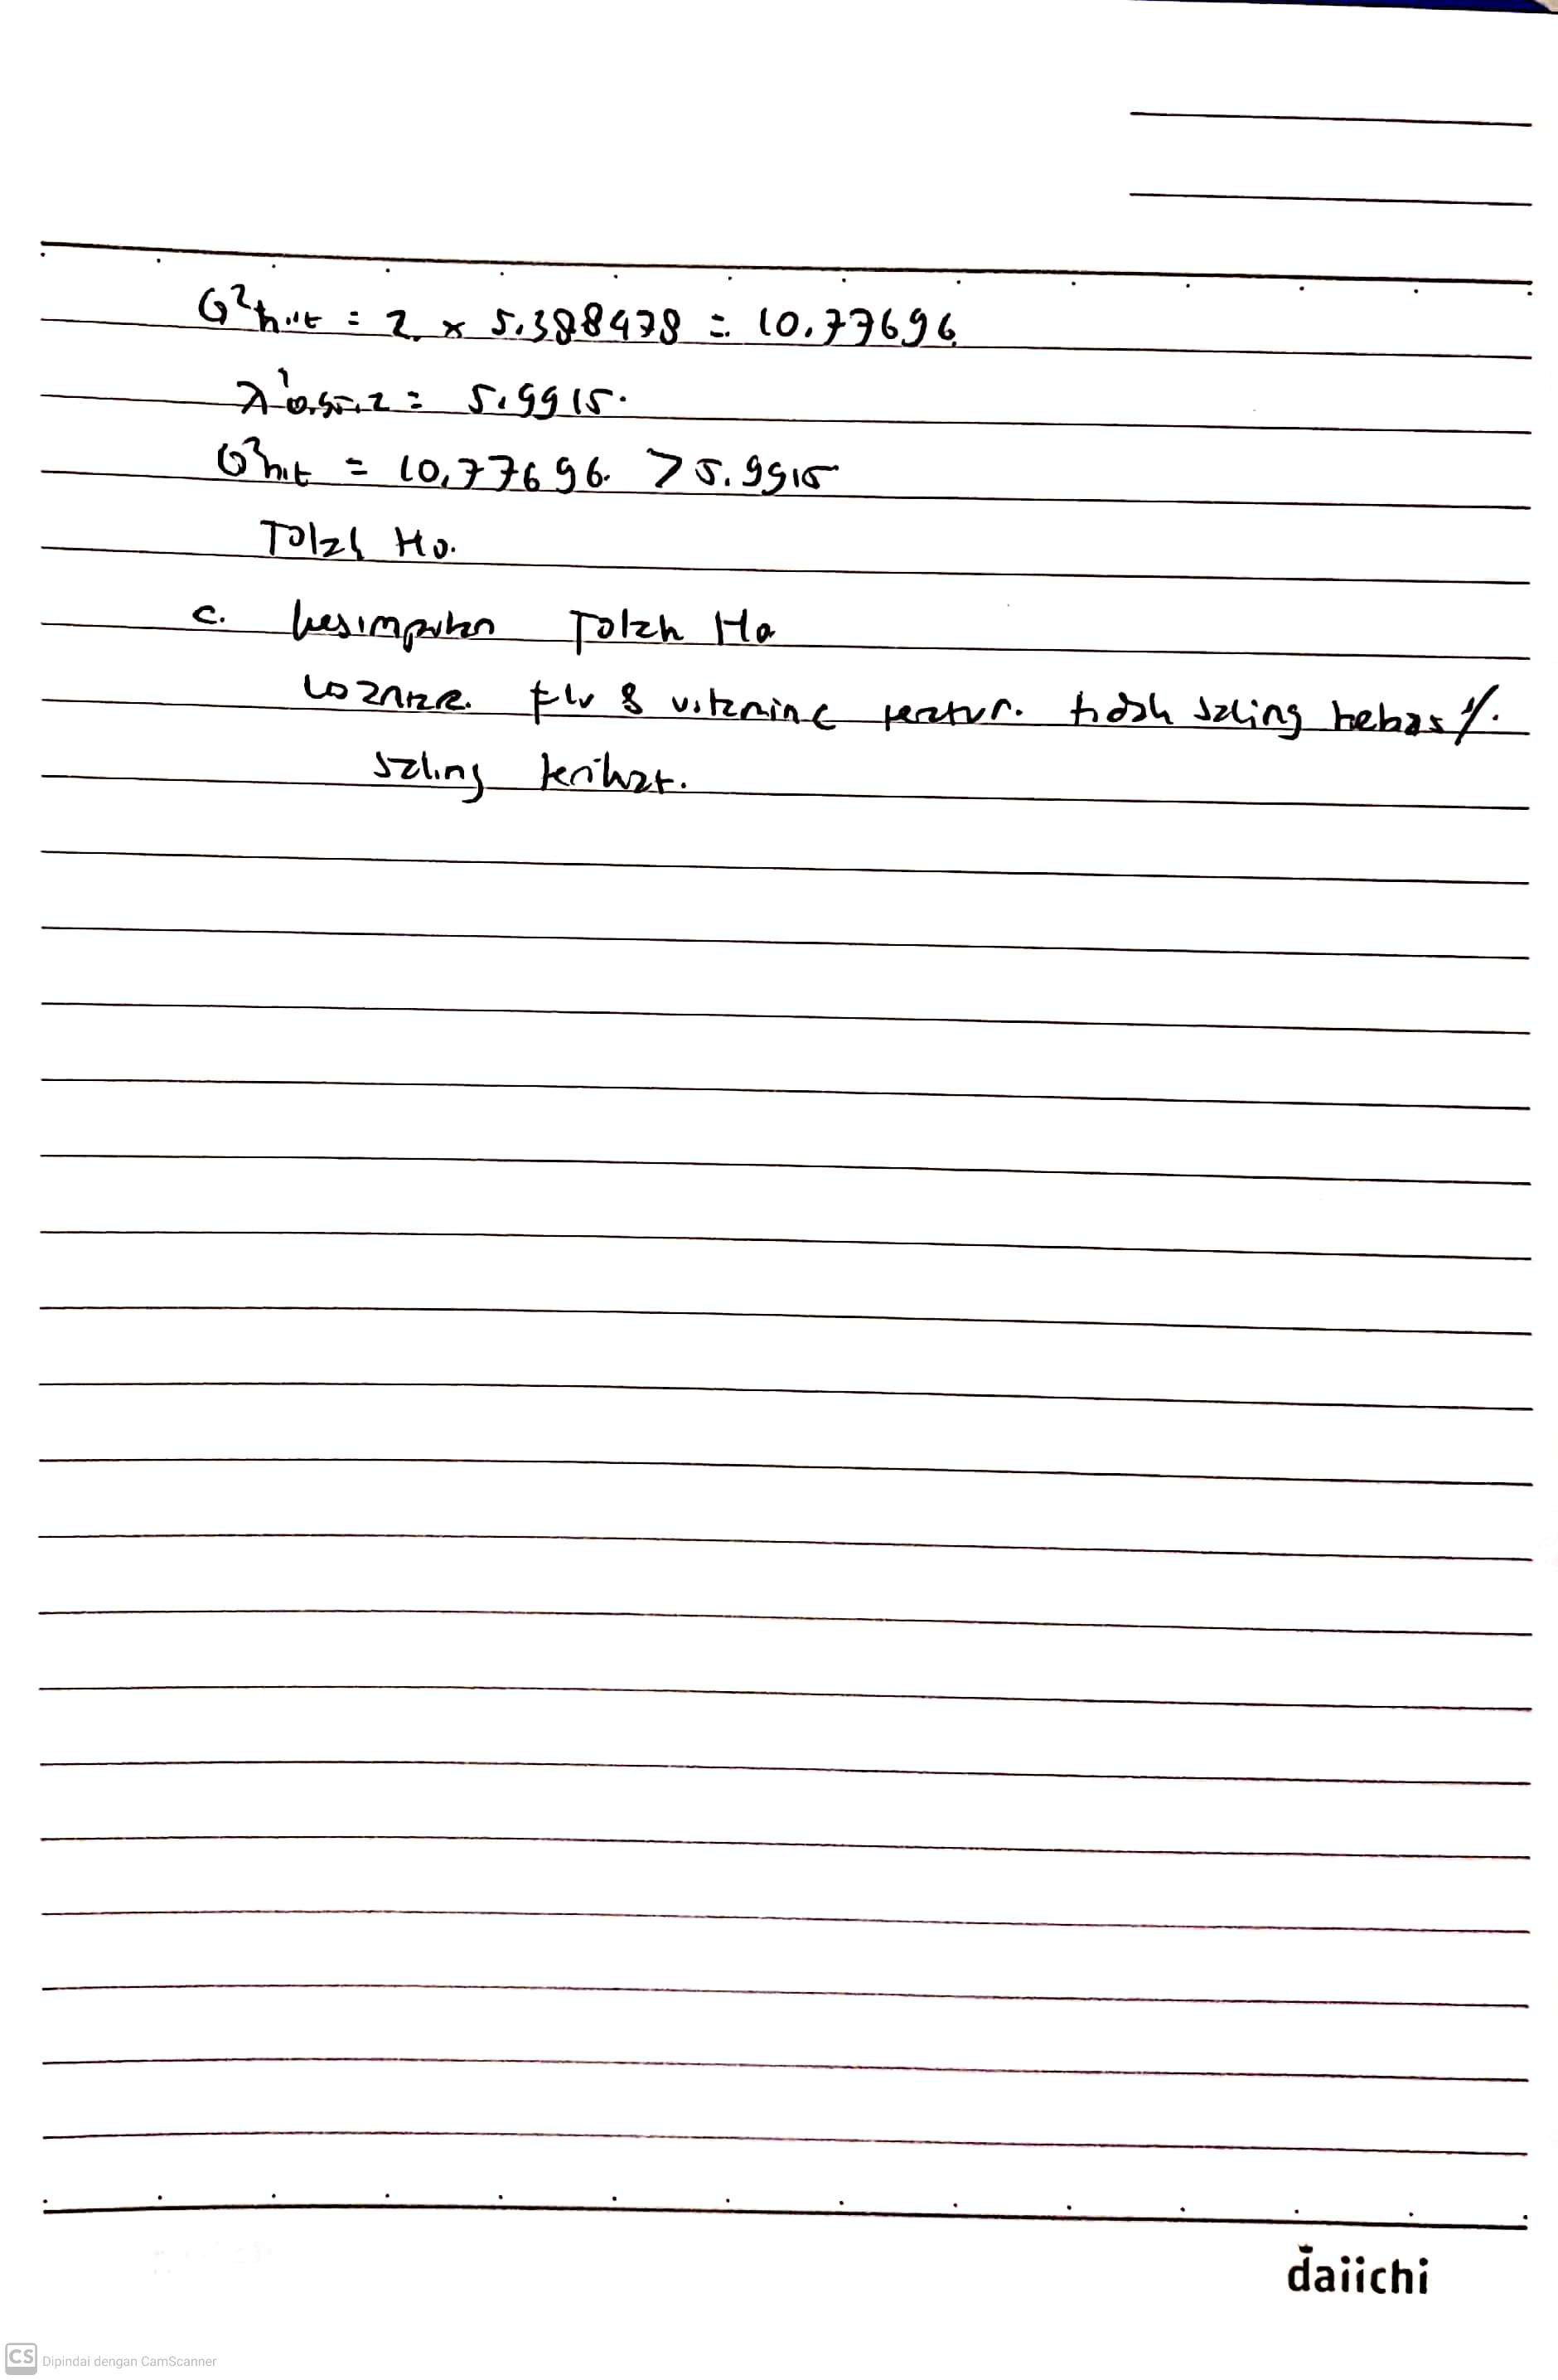 G²hit = 2 x 5.388478 = 10.77696
= 5.9915.
G²hit = 10,77696 > 5.9915
Tolak Ho.
c. kesimpulan Tolak Ho
flu & vitamin c tidak saling bebas /.
saling terikat.
daiichi
CS Dipindai dengan CamScanner